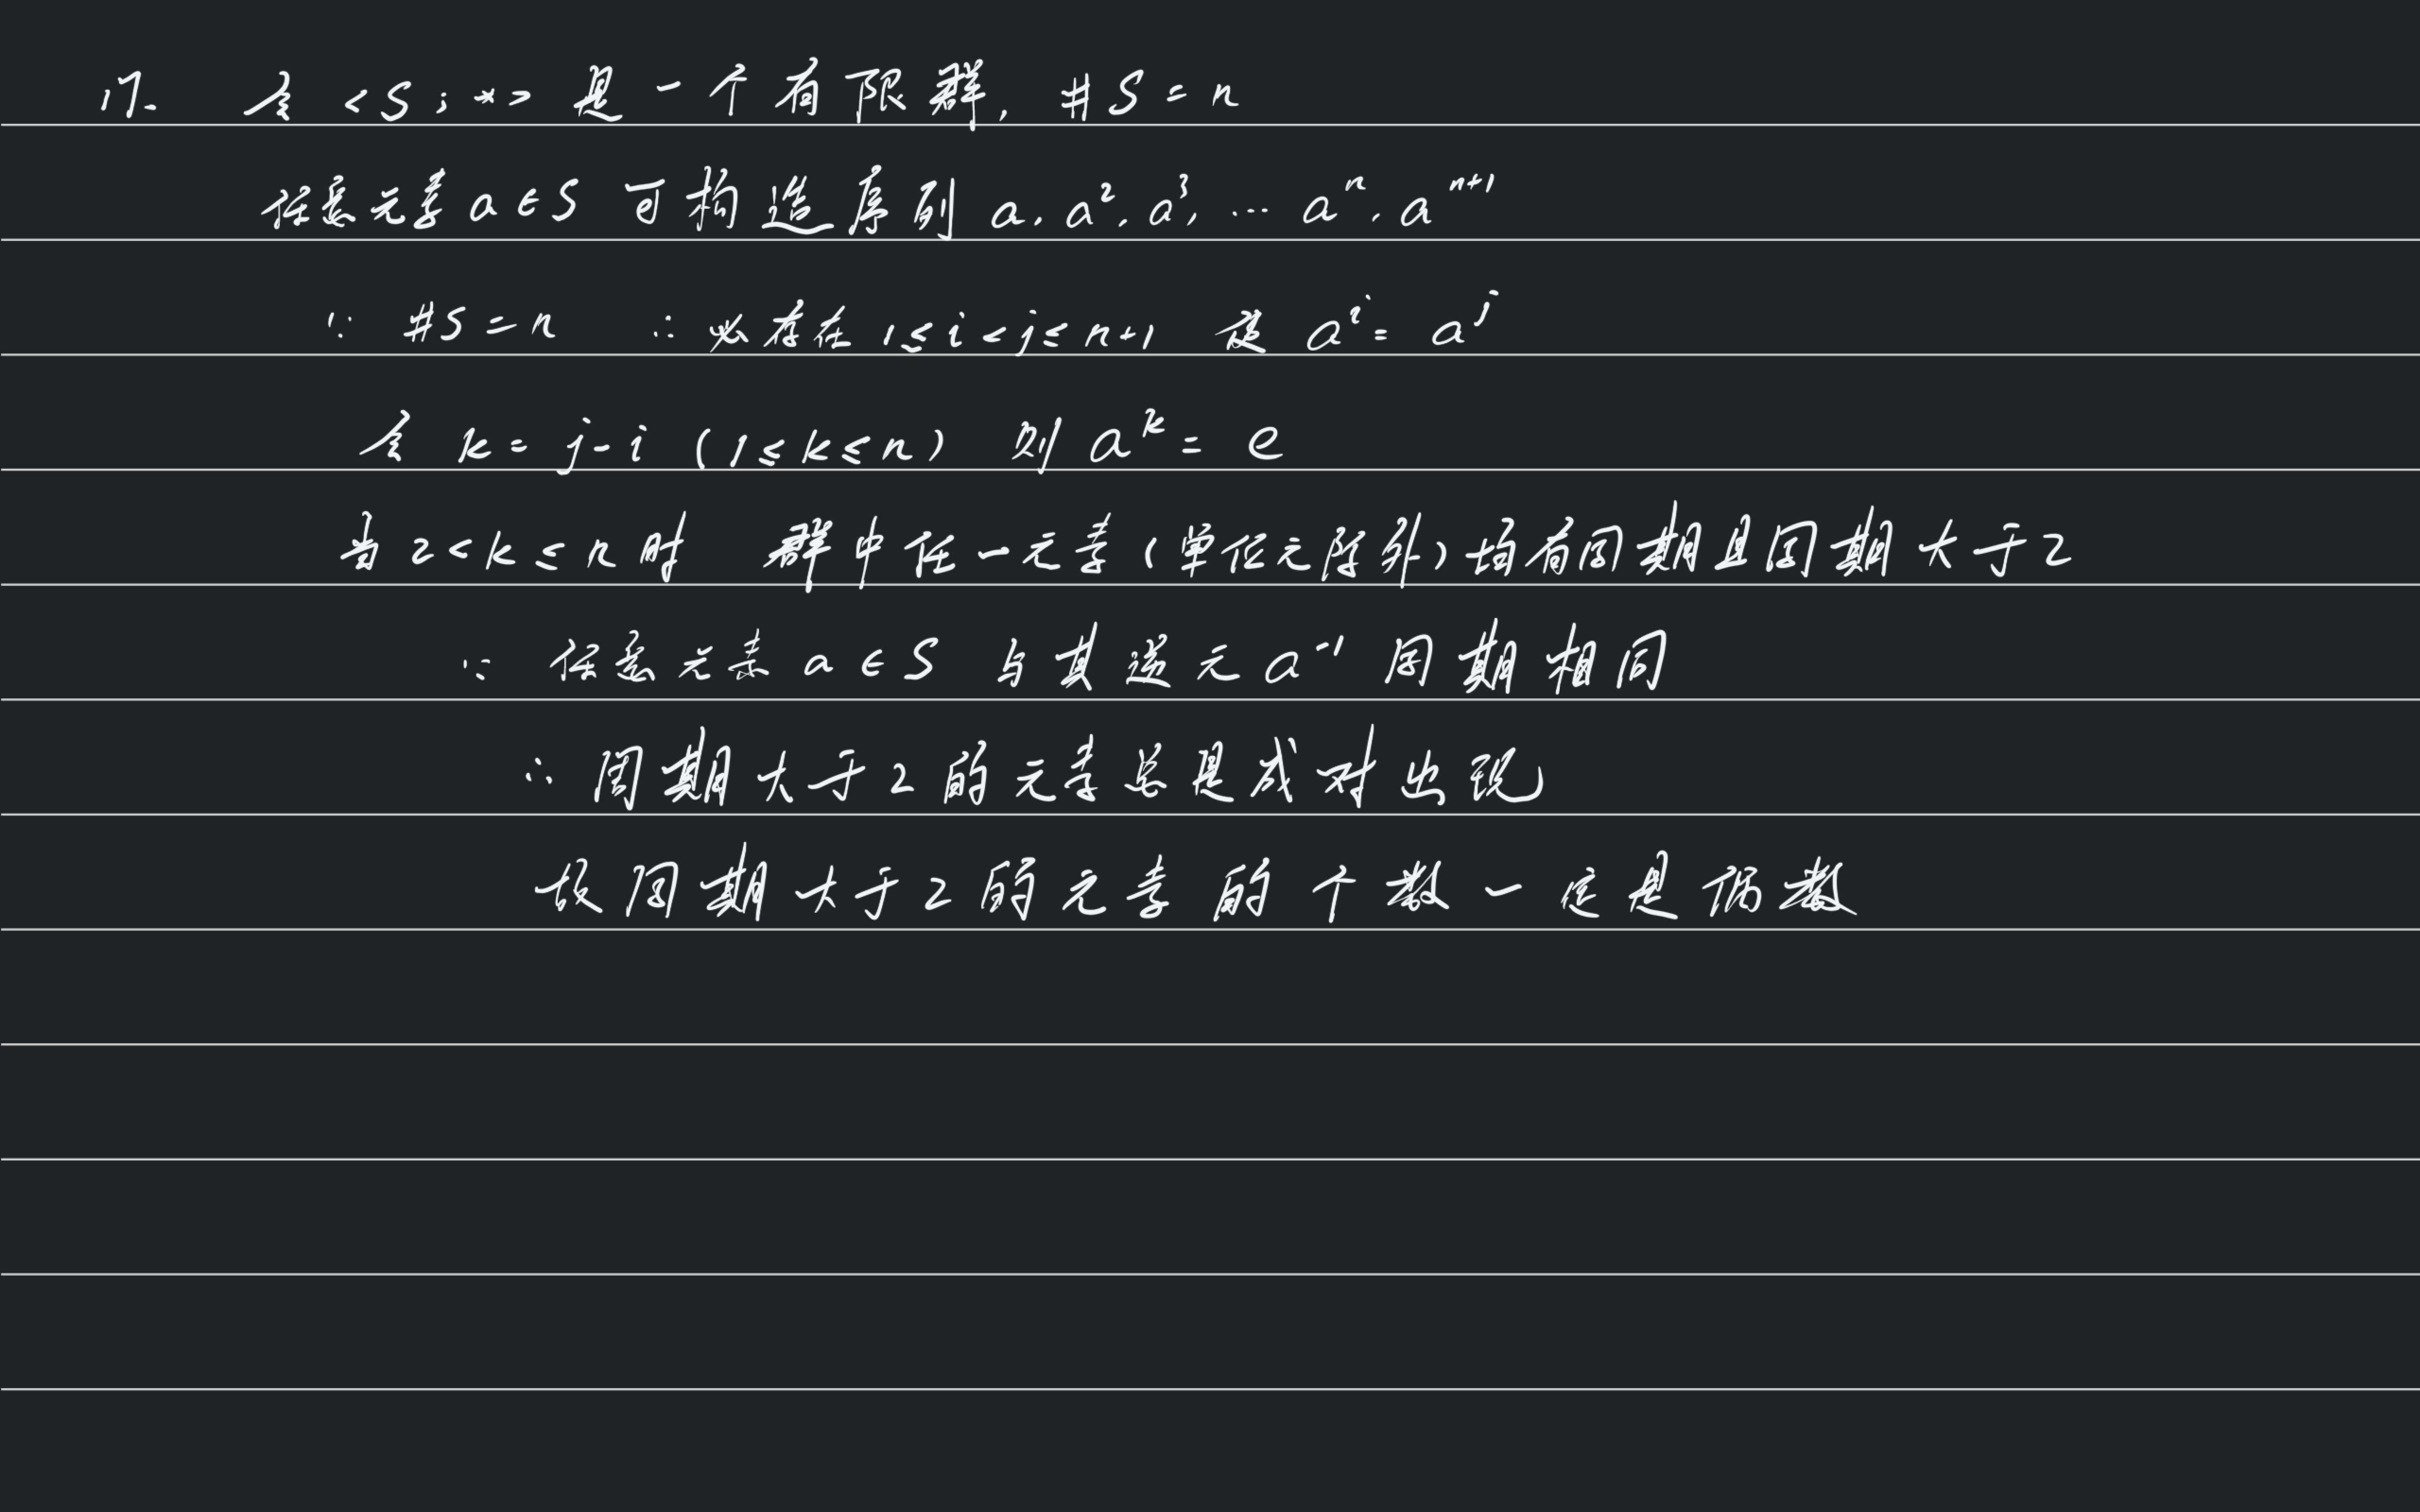 17. 令 <S; *> 是一个有限群, #S = n
任意元素 a ∈ S 可构造序列 a, a², a³, … aⁿ, aⁿ⁺¹
∵ #S = n ∴ 必存在 1 ≤ i < j ≤ n+1 使 aⁱ = aʲ
令 k = j - i (1 ≤ k ≤ n) 则 aᵏ = e
当 2 < k ≤ n 时 群中任一元素(单位元除外)均有周期且周期大于2
∵ 任意元素 a ∈ S 与其逆元 a⁻¹ 周期相同
∴ 周期大于2的元素总是成对出现
故周期大于2的元素的个数一定是偶数